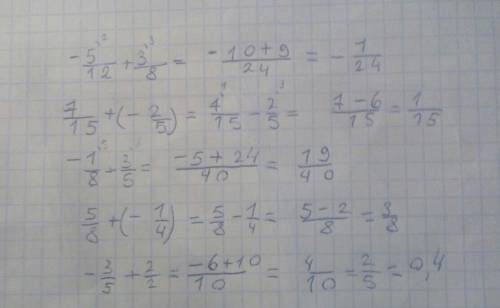 -5/12 + 3/8 = (-10+9)/24 = -1/24
7/15 + (-2/5) = 7/15 - 2/5 = (7-6)/15 = 1/15
-1/8 + 3/5 = (-5+24)/40 = 19/40
5/8 + (-1/4) = 5/8 - 1/4 = (5-2)/8 = 3/8
-3/5 + 2/2 = (-6+10)/10 = 4/10 = 2/5 = 0,4